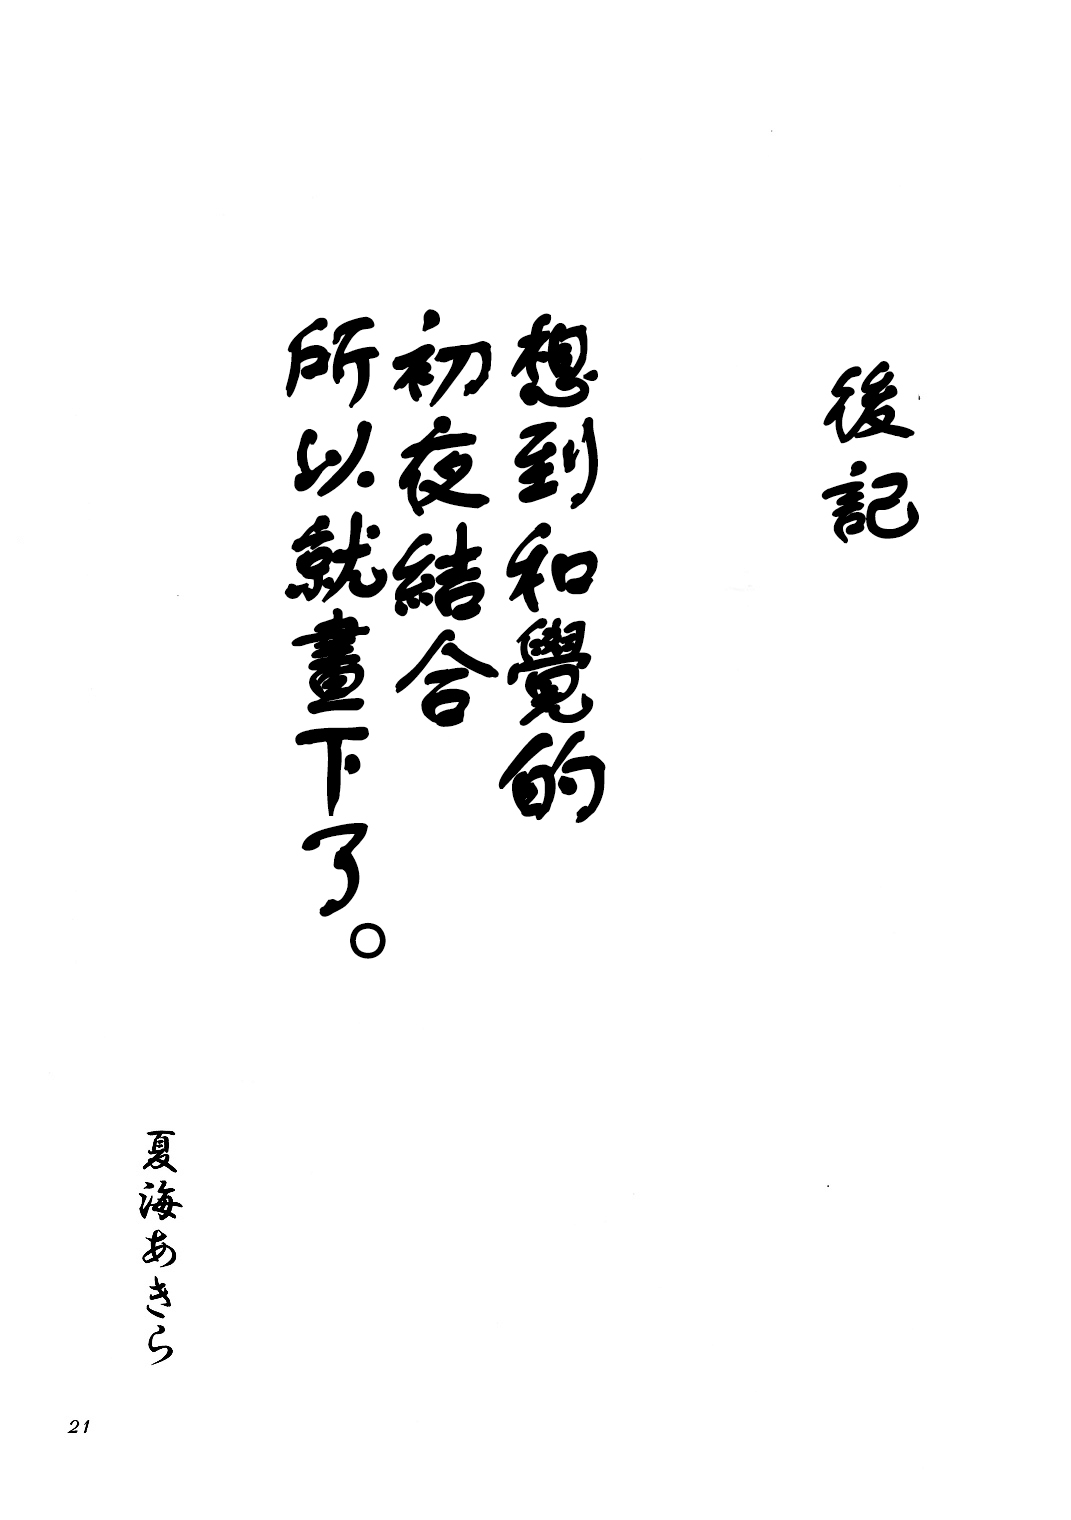 後記
想到和覺的
初夜結合
所以就畫下了。
夏海あきら
21